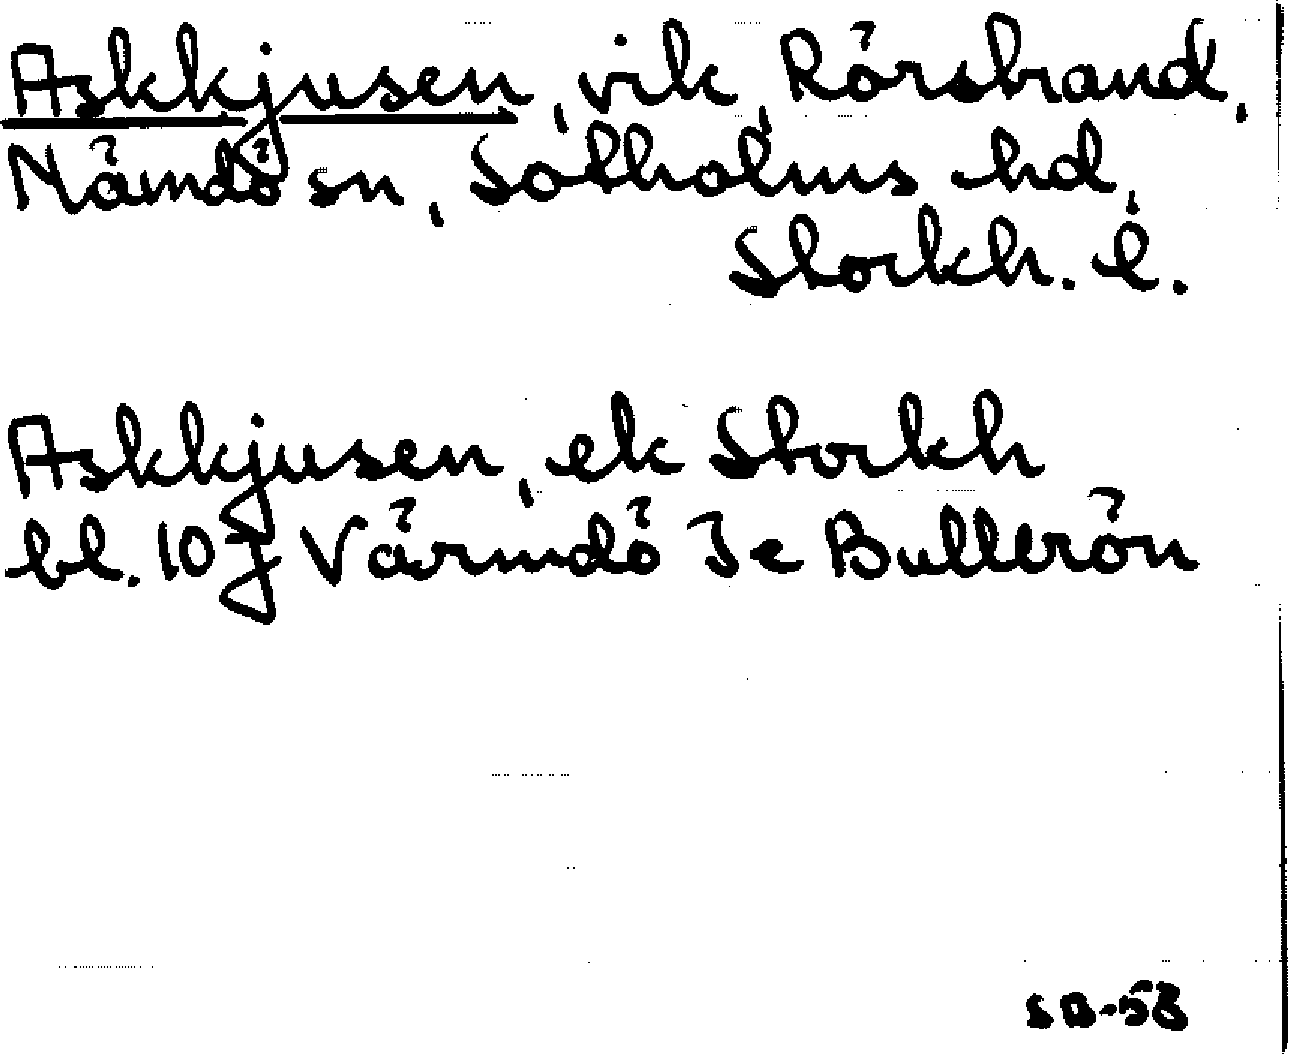 Askkjusen, vik, Rörstrand,
Nämdö sn, Sotholms hd,
Stockh. l.
Askkjusen, ek Stockh
bl. 10 j Värmdö Je Bullerön
SB-58